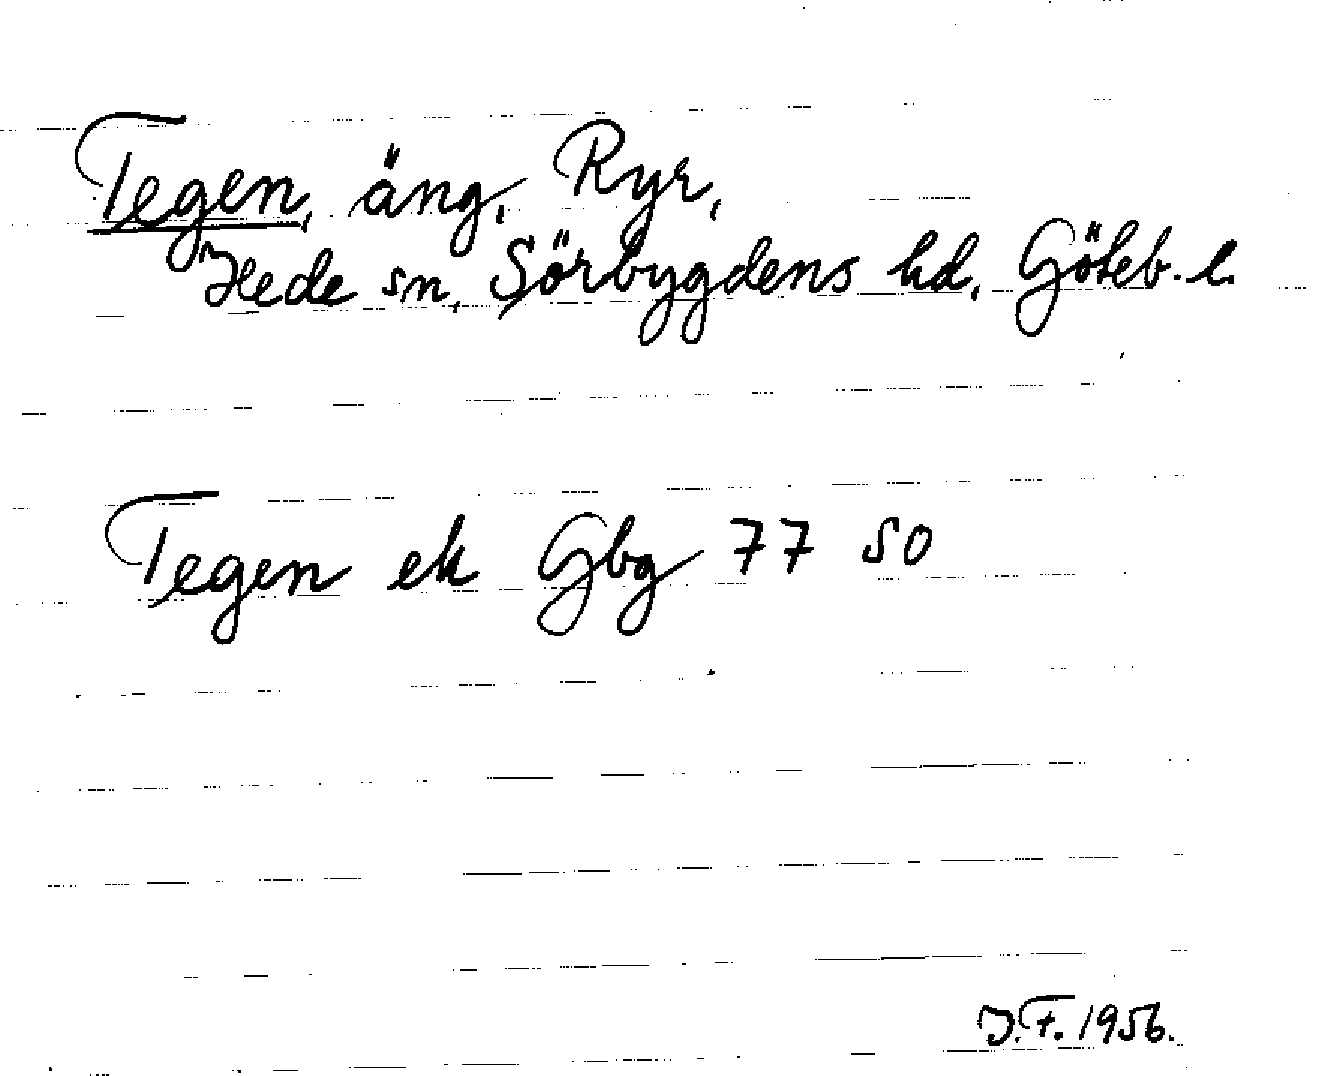 Tegen, äng, Ryr,
Hede sn, Sörbygdens hd, Göteb. l.
Tegen ek Gbg 77 50
J.F. 1956.